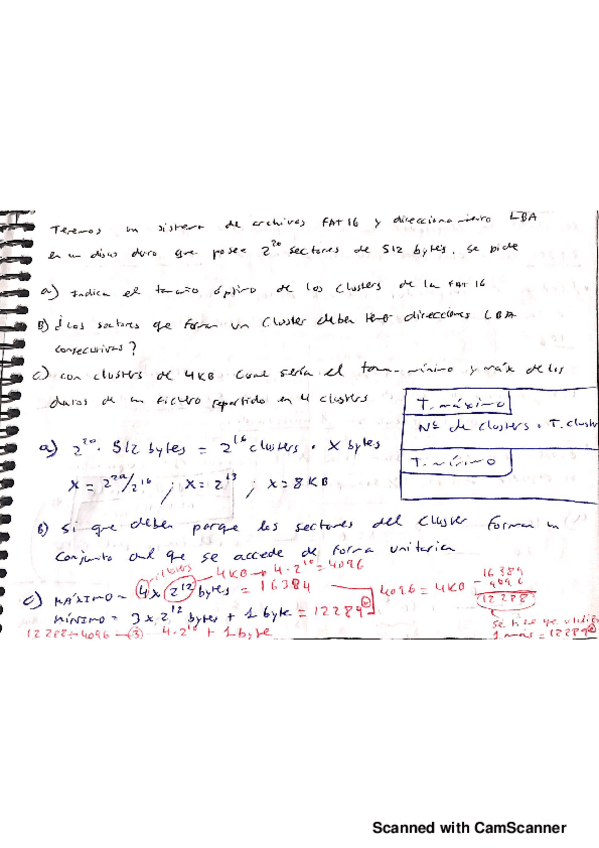 1
Tenemos un sistema de archivos FAT16 y direccionamiento LBA
en un disco duro que posee 2²⁰ sectores de 512 bytes. se pide
a) Indica el tamaño óptimo de los clusters de la FAT16
B) ¿Los sectores que forman un cluster deben tener direcciones LBA
consecutivas?
c) con clusters de 4KB cual sería el tam. mínimo y máx de los
datos de un fichero repartido en 4 clusters
T. máximo
Nº de clusters · T. cluster
T. mínimo
a) 2²⁰ · 512 bytes = 2¹⁶ clusters · X bytes
X = 2²⁹/2¹⁶ ; X = 2¹³ ; X = 8KB
B) Si que deben porque los sectores del cluster forman un
conjunto al que se accede de forma unitaria
4KB → 4·2¹⁰ = 4096
c) MÁXIMO = 4 x 2¹² bytes = 16384
4096 = 4KB
16384
- 4096
12288
MÍNIMO = 3 x 2¹² bytes + 1 byte = 12289
12288 ÷ 4096 → 3
4·2¹⁰ + 1 byte
se tiene que
1 más = 12289
Scanned with CamScanner